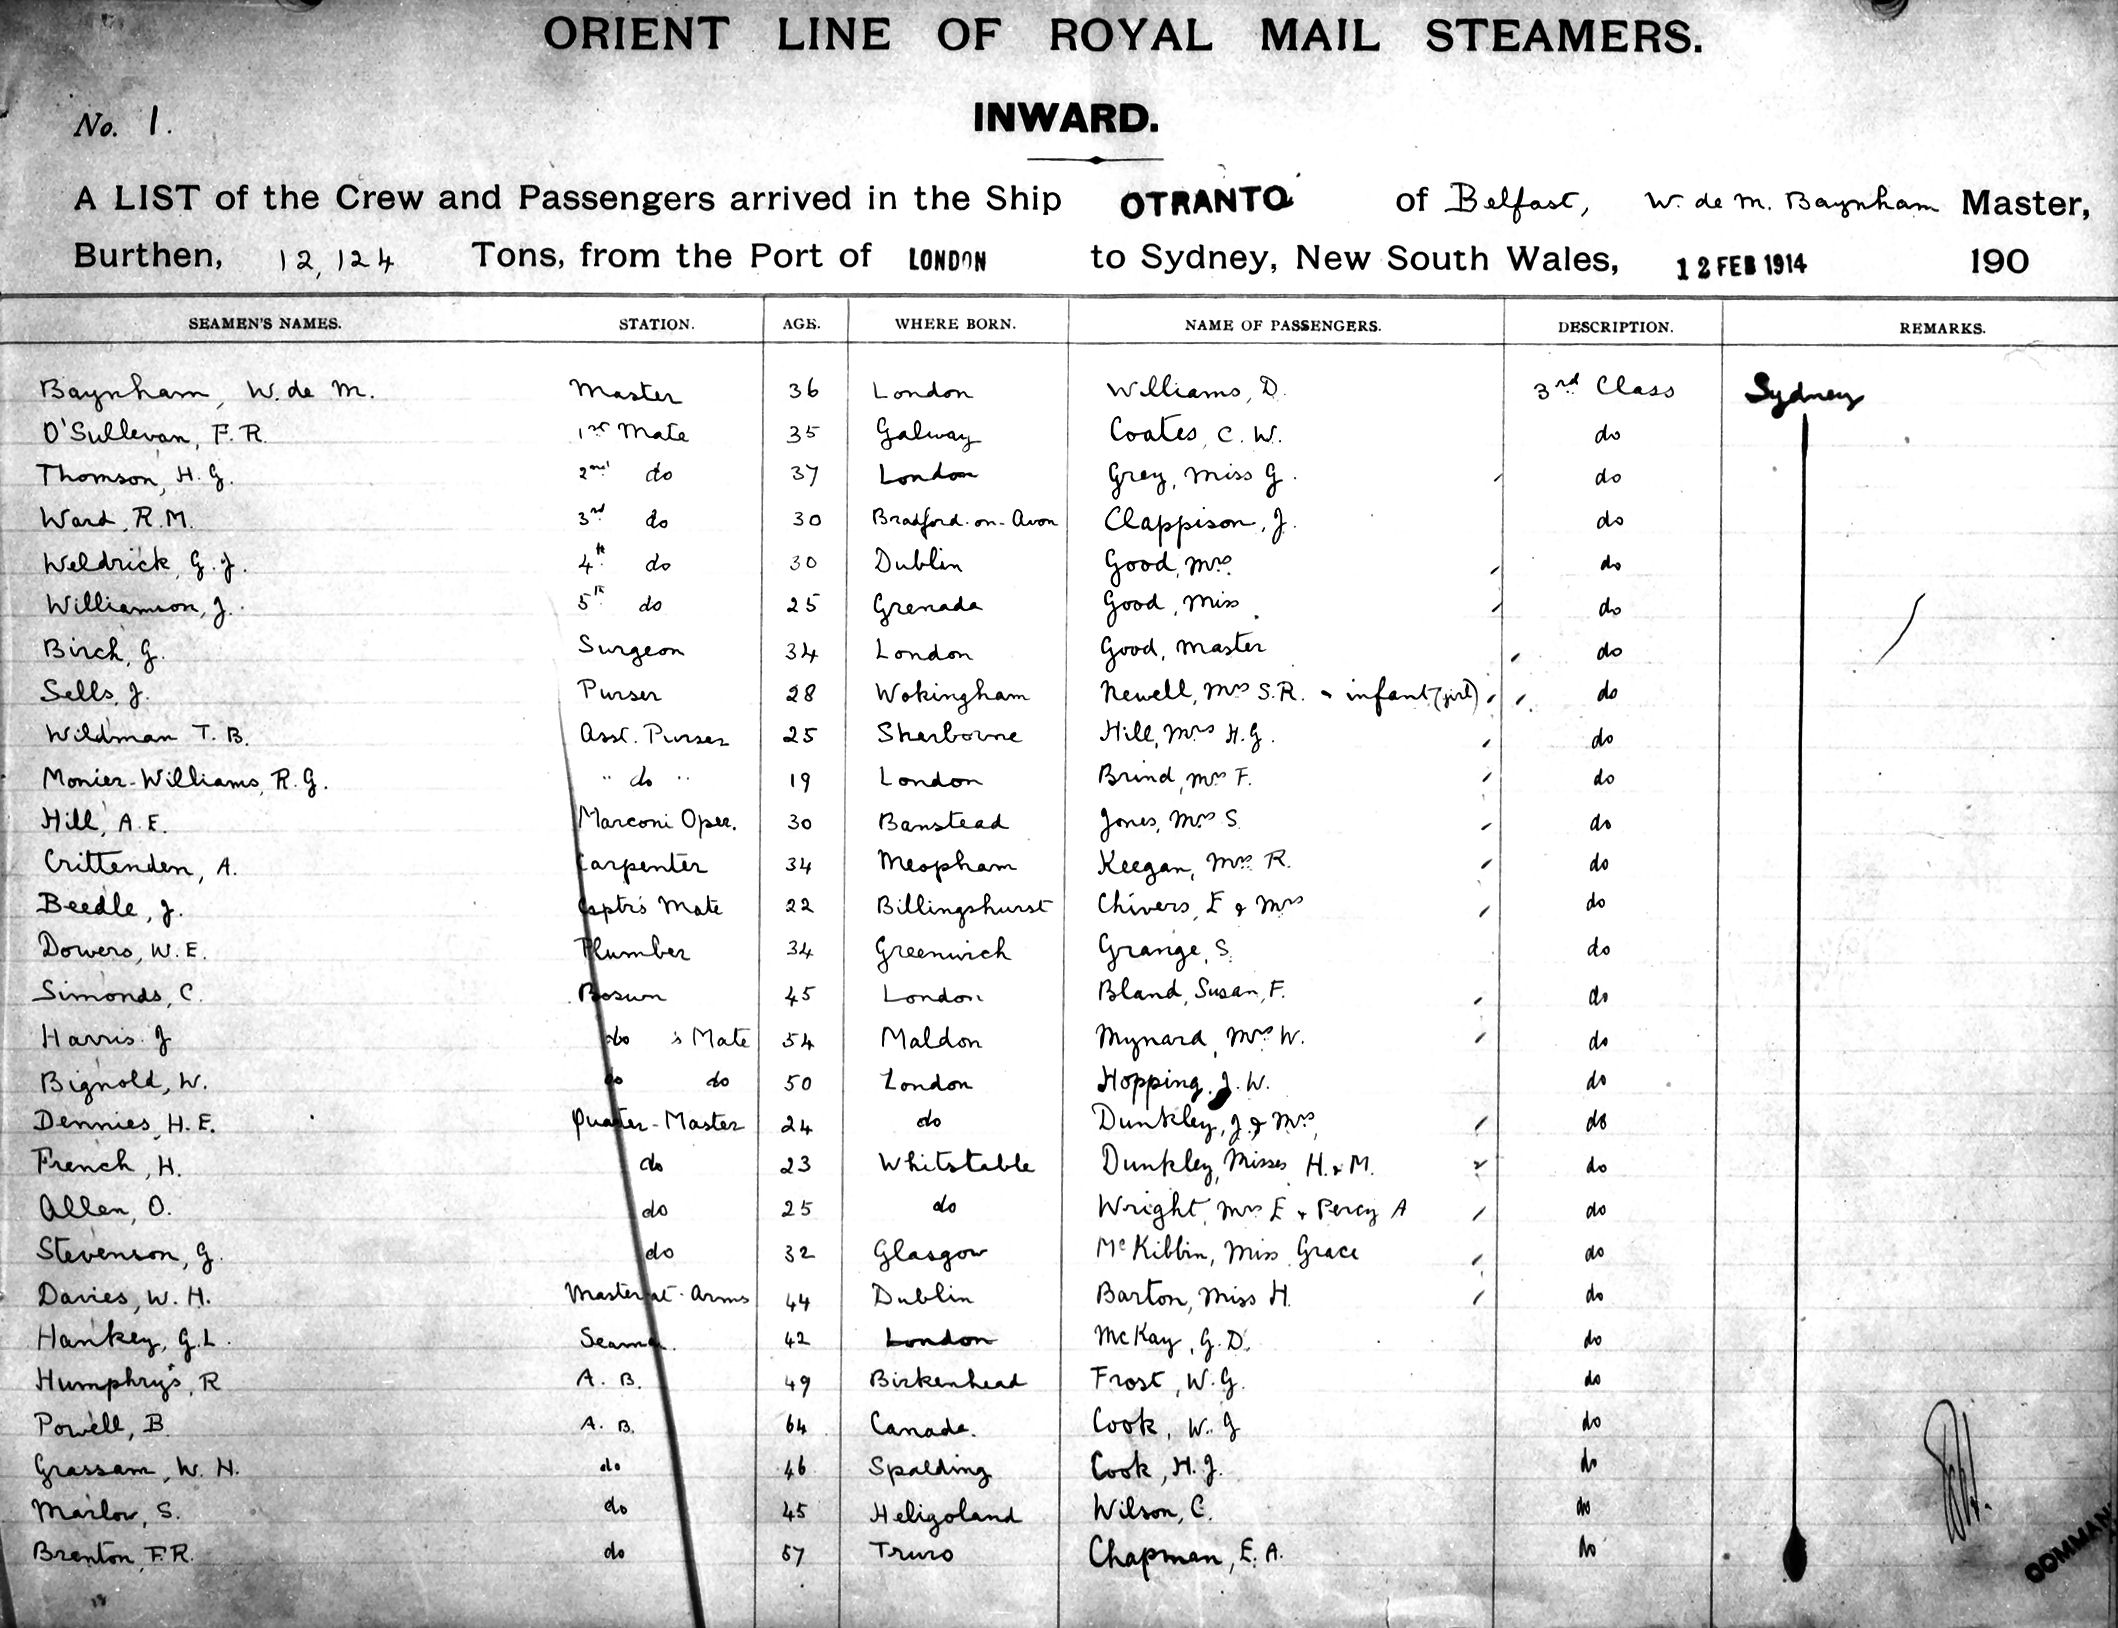 ORIENT LINE OF ROYAL MAIL STEAMERS.
No. 1.
INWARD.
A LIST of the Crew and Passengers arrived in the Ship OTRANTO of Belfast, W. de M. Baynham Master,
Burthen, 12,124 Tons, from the Port of LONDON to Sydney, New South Wales, 12 FEB 1914 190
SEAMEN'S NAMES. STATION. AGE. WHERE BORN. NAME OF PASSENGERS. DESCRIPTION. REMARKS.
Baynham, W. de M. Master 36 London Williams, D. 3rd Class Sydney
O'Sullevan, F. R. 1st Mate 35 Galway Coates, C. W. do
Thomson, H. G. 2nd do 37 London Grey, Miss G. do
Ward, R. M. 3rd do 30 Bradford-on-Avon Clappison, J. do
Weldrick, G. J. 4th do 30 Dublin Good, Mrs. do
Williamson, J. 5th do 25 Grenada Good, Miss do
Birch, G. Surgeon 34 London Good, Master do
Sells, J. Purser 28 Wokingham Newell, Mrs S.R. & infant (girl) do
Wildman T. B. Asst. Purser 25 Sherborne Hill, Mrs H. G. do
Monier-Williams, R. G. " do " 19 London Brind, Mrs F. do
Hill, A. E. Marconi Oper. 30 Banstead Jones, Mrs S. do
Crittenden, A. Carpenter 34 Meopham Keegan, Mrs R. do
Beedle, J. Cptr's Mate 22 Billingshurst Chivers, E & Mrs do
Dowers, W. E. Plumber 34 Greenwich Grange, S. do
Simonds, C. Bosun 45 London Bland, Susan, F. do
Harris J do 's Mate 54 Maldon Mynard, Mrs W. do
Bignold, W. do do 50 London Hopping, J. W. do
Dennies, H. E. Quarter-Master 24 do Dunkley, J. & Mrs, do
French, H. do 23 Whitstable Dunkley, Misses H. & M. do
Allen, O. do 25 do Wright, Mrs E & Percy A do
Stevenson, G. do 32 Glasgow McKibbin, Miss Grace do
Davies, W. H. Master-at-Arms 44 Dublin Barton, Miss H. do
Hankey, G. L. Seaman 42 London McKay, G. D. do
Humphrys, R A. B. 49 Birkenhead Frost, W. G. do
Powell, B. A. B. 64 Canada. Cook, W. J do
Grassam, W. H. do 46 Spalding Cook, H. J. do
Marlow, S. do 45 Heligoland Wilson, C. do
Brenton, F. R. do 57 Truro Chapman, E. A. do